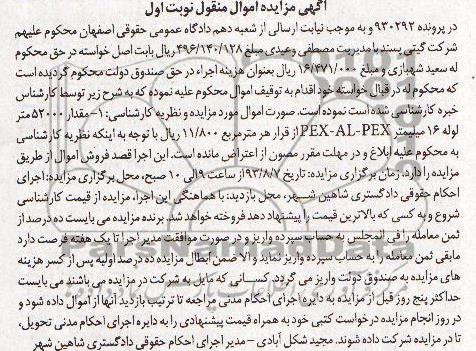 آگهی مزایده اموال منقول نوبت اول
در پرونده ۹۳۰۲۹۲ و به موجب نیابت ارسالی از شعبه دهم دادگاه عمومی حقوقی اصفهان محکوم علیهم
شرکت گیتی پسند با مدیریت مصطفی وعیدی مبلغ ۴۹۶/۱۴۰/۱۲۸ ریال بابت اصل خواسته در حق محکوم
له سعید شهبازی و مبلغ ۱۶/۴۷۱/۰۰۰ ریال بعنوان هزینه اجراء در حق صندوق دولت محکوم گردیده است
که محکوم له در قبال خواسته خود اقدام به توقیف اموال محکوم علیه نموده که به شرح زیر توسط کارشناس
خبره کارشناسی شده است نموده است. صورت اموال مورد مزایده و نظریه کارشناسی: ۱- مقدار ۵۲۰۰۰ متر
لوله ۱۶ میلیمتر PEX-AL-PEX از قرار هر مترمربع ۱۱/۸۰۰ ریال با توجه به اینکه نظریه کارشناسی
به محکوم علیه ابلاغ و در مهلت مقرر مصون از اعتراض مانده است. این اجرا قصد فروش اموال از طریق
مزایده را دارد. زمان برگزاری مزایده: تاریخ ۹۳/۸/۷ از ساعت ۹ الی ۱۰ صبح، محل برگزاری مزایده: اجرای
احکام حقوقی دادگستری شاهین شهر، محل بازدید: با هماهنگی این اجرا، مزایده از قیمت کارشناسی
شروع و به کسی که بالاترین قیمت را پیشنهاد دهد فروخته خواهد شد. برنده مزایده می بایست ده درصد از
ثمن معامله را فی المجلس به حساب سپرده واریز و در صورت موافقت مدیر اجرا تا یک هفته فرصت دارد
مابقی ثمن معامله را به حساب سپرده واریز نماید و الا ضمن ابطال مزایده ده درصد اولیه پس از کسر هزینه
های مزایده به صندوق دولت واریز می گردد. کسانی که مایل به شرکت در مزایده می باشند می بایست
حداکثر پنج روز قبل از مزایده به دایره اجرای احکام مدنی مراجعه تا ترتیب بازدید آنها از اموال داده شود و
در روز انجام مزایده درخواست کتبی خود به همراه قیمت پیشنهادی را به دایره اجرای احکام مدنی تحویل،
تا در مزایده شرکت داده شوند. مجید شکل آبادی - مدیر اجرای احکام حقوقی دادگستری شاهین شهر